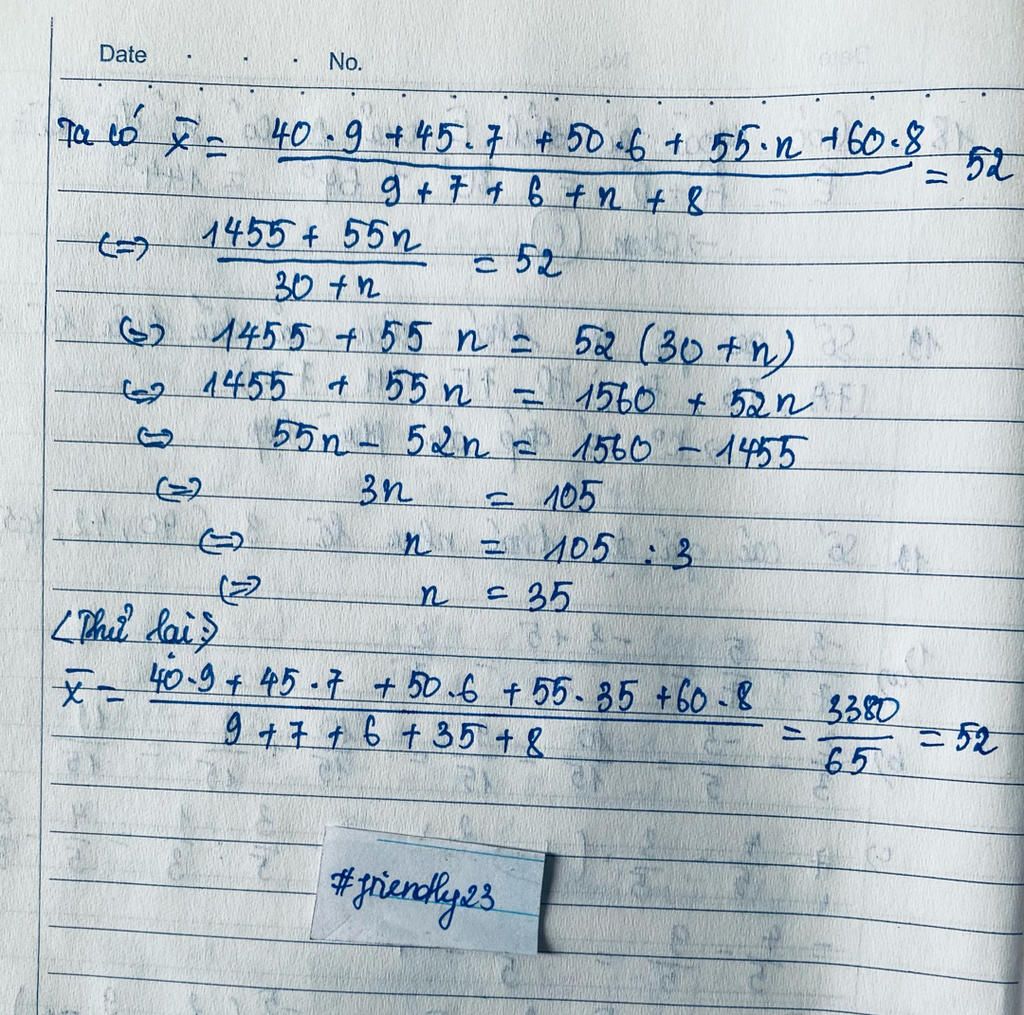 Date . . . No.
Ta có x̄ = (40·9 + 45·7 + 50·6 + 55·n + 60·8) / (9 + 7 + 6 + n + 8) = 52
(=) (1455 + 55n) / (30 + n) = 52
(=) 1455 + 55 n = 52 (30 + n)
(=) 1455 + 55n = 1560 + 52n
(=) 55n - 52n = 1560 - 1455
(=) 3n = 105
(=) n = 105 : 3
(=) n = 35
<Thử lại:>
x̄ = (40·9 + 45·7 + 50·6 + 55·35 + 60·8) / (9 + 7 + 6 + 35 + 8) = 3380 / 65 = 52
#friendly23